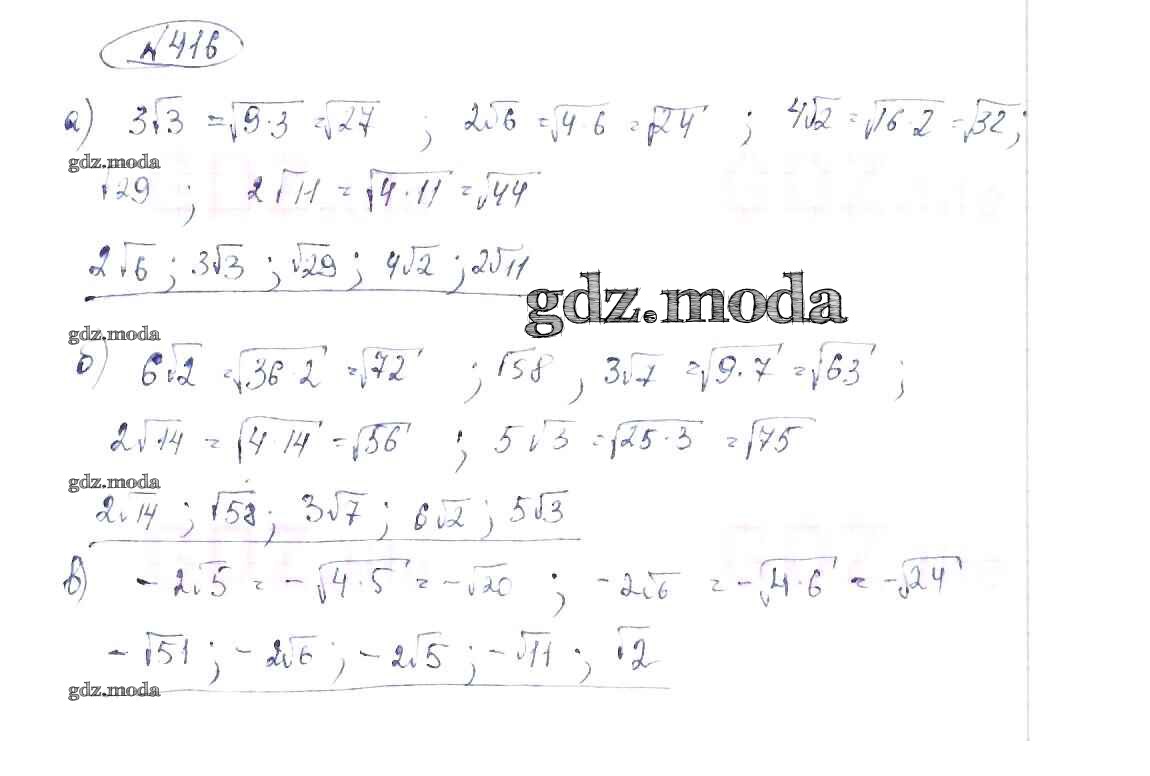 № 416
а) 3√3 = √9·3 = √27 ; 2√6 = √4·6 = √24 ; 4√2 = √16·2 = √32;
gdz.moda
√29 ; 2√11 = √4·11 = √44
2√6 ; 3√3 ; √29 ; 4√2 ; 2√11
gdz.moda
gdz.moda
б) 6√2 = √36·2 = √72 ; √58 , 3√7 = √9·7 = √63 ;
2√14 = √4·14 = √56 ; 5√3 = √25·3 = √75
gdz.moda
2√14 ; √58 ; 3√7 ; 6√2 ; 5√3
в) -2√5 = -√4·5 = -√20 ; -2√6 = -√4·6 = -√24
-√51 ; -2√6 ; -2√5 ; -√11 ; √2
gdz.moda